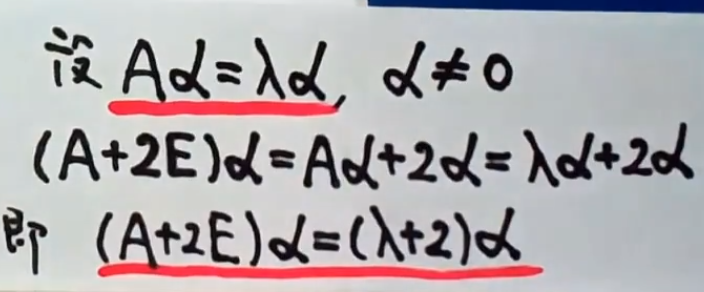 设 Aα=λα, α≠0
(A+2E)α=Aα+2α=λα+2α
即 (A+2E)α=(λ+2)α